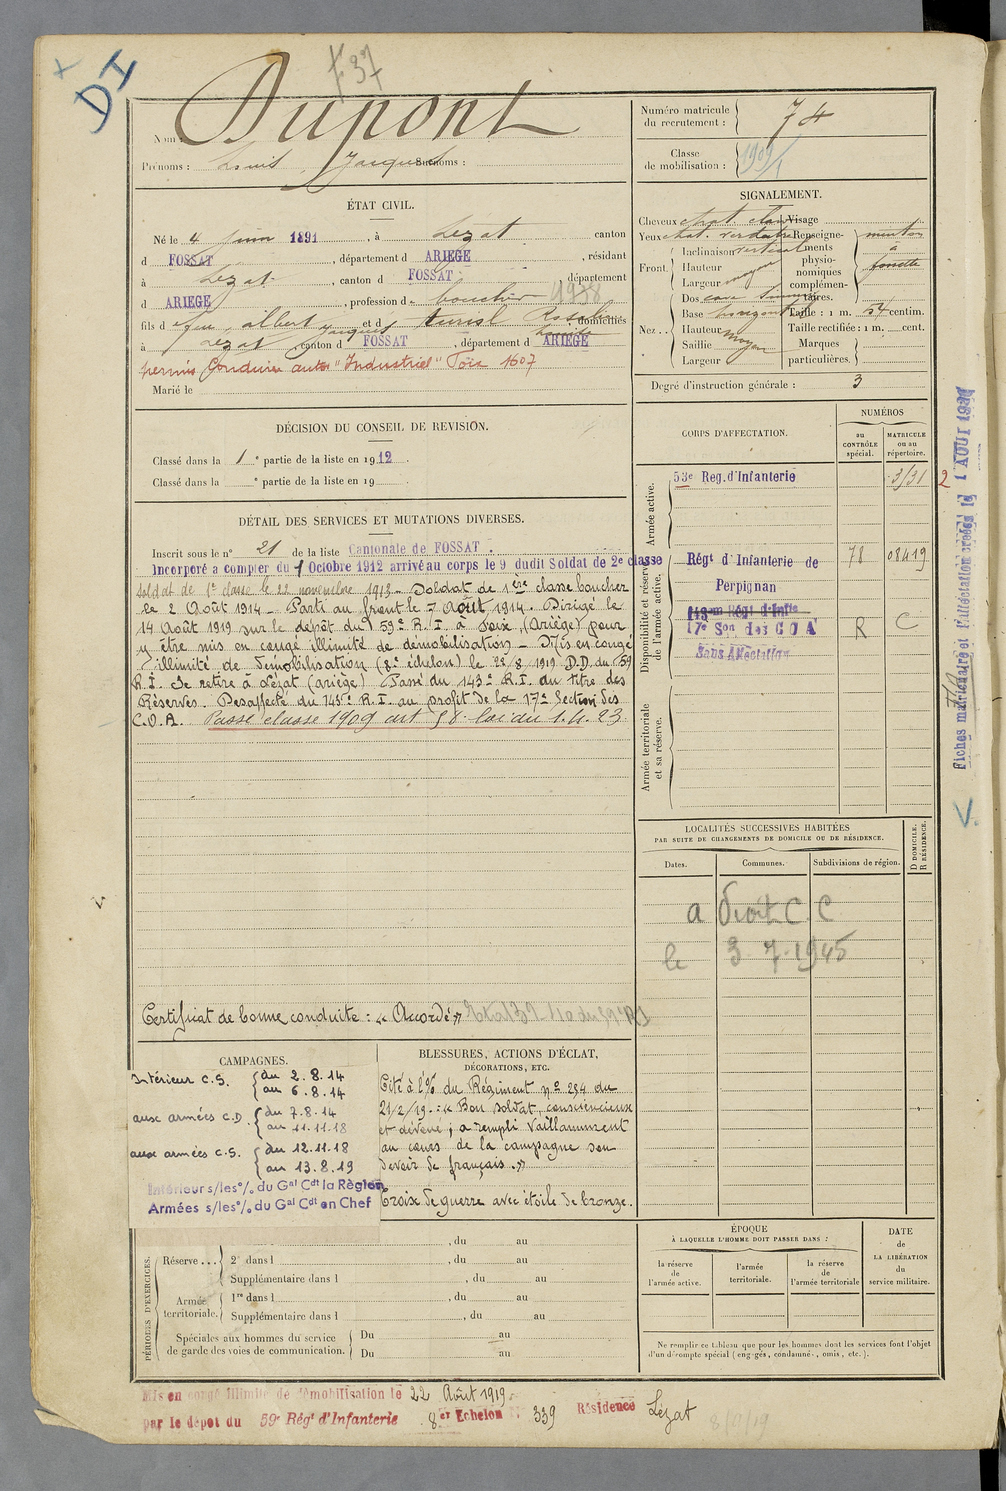 DI
f. 37
Nom : Dupont
Prénoms : Louis Jacques Surnoms :
Numéro matricule
du recrutement : 74
Classe
de mobilisation : 1909/1
ÉTAT CIVIL.
Né le 4 Juin 1891, à Lezat canton
d FOSSAT, département d ARIEGE, résidant
à Lezat, canton d FOSSAT, département
d ARIEGE, profession de boucher
fils d feu, albert Jacques et d domiciliés
à Lezat, canton d FOSSAT, département d ARIEGE
permis Conduire autos "Industriel" Foix 1607
Marié le
SIGNALEMENT.
Cheveux chat. clair Visage
Yeux chat. verdatre Renseigne-
ments
physio-
nomiques
complémen-
taires. menton
à
fossette
Front. Inclinaison vertical
Hauteur
Largeur moyen
Nez.. Dos cave
Base horizontal
Hauteur moyen
Saillie
Largeur
Taille : 1 m. 54 centim.
Taille rectifiée : 1 m. cent.
Marques
particulières.
Degré d'instruction générale : 3
DÉCISION DU CONSEIL DE REVISION.
Classé dans la 1e partie de la liste en 1912.
Classé dans la e partie de la liste en 19
DÉTAIL DES SERVICES ET MUTATIONS DIVERSES.
Inscrit sous le n° 21 de la liste Cantonale de FOSSAT.
Incorporé a compter du 1 Octobre 1912 arrivé au corps le 9 dudit Soldat de 2e classe
Soldat de 1e classe le 22 novembre 1913 - Soldat de 1ère classe boucher
le 2 Août 1914 - Parti au front le 7 Août 1914 - Dirigé le
14 Août 1919 sur le dépôt du 59e R.I. à Foix (Ariège) pour
y être mis en congé illimité de démobilisation - Mis en congé
illimité de démobilisation (8e échelon) le 22/8 1919 D.D. du 59
R.I. Se retire à Lézat (ariège) Passé du 143e R.I. au titre des
Réserves. Desaffecté du 143e R.I. au profit de la 17e Section des
C.O.A. Passe classe 1909 art 58 loi du 1.4.23
Certificat de bonne conduite : « Accordé »
CORPS D'AFFECTATION.
NUMÉROS
au
CONTRÔLE
spécial.
MATRICULE
ou au
répertoire.
Armée active.
53e Reg. d'Infanterie 3/31 2
Disponibilité et réserve
de l'armée active.
Régt d'Infanterie de 78 08419
Perpignan
143em Régt d'Infie
17e Son des COA R C
Sans Affectation
Armée territoriale
et sa réserve.
Fiches matriculaire et d'affectation créées le 1 AOUT
V.
LOCALITÉS SUCCESSIVES HABITÉES
PAR SUITE DE CHANGEMENTS DE DOMICILE OU DE RÉSIDENCE.
D DOMICILE.
R RÉSIDENCE.
Dates. Communes. Subdivisions de région.
a droit C C
le 3-7-1945
CAMPAGNES.
Intérieur C.S. du 2.8.14
au 6.8.14
aux armées C.D. du 7.8.14
au 11.11.18
aux armées C.S. du 12.11.18
au 13.8.19
Intérieur s/les °/. du Gal Cdt la Région
Armées s/les °/. du Gal Cdt en Chef
BLESSURES, ACTIONS D'ÉCLAT,
DÉCORATIONS, ETC.
Cité à l'% du Régiment n° 284 du
21/2/19. : « Bon soldat, consciencieux
et dévoué ; a rempli vaillamment
au cours de la campagne son
devoir de français. »
Croix de guerre avec étoile de bronze.
PÉRIODES D'EXERCICES.
, du au
Réserve... 2e dans l , du au
Supplémentaire dans l , du au
Armée
territoriale. 1re dans l , du au
Supplémentaire dans l , du au
Spéciales aux hommes du service
de garde des voies de communication. Du au
Du au
ÉPOQUE
À LAQUELLE L'HOMME DOIT PASSER DANS :
la réserve
de
l'armée active.
l'armée
territoriale.
la réserve
de
l'armée territoriale
DATE
de
LA LIBÉRATION
du
service militaire.
Ne remplir ce tableau que pour les hommes dont les services font l'objet
d'un décompte spécial (engagés, condamnés, omis, etc.).
Mis en congé illimité de démobilisation le 22 Août 1919.
par le dépot du 59e Régt d'Infanterie 8er Echelon N° 339 Résidence Lézat